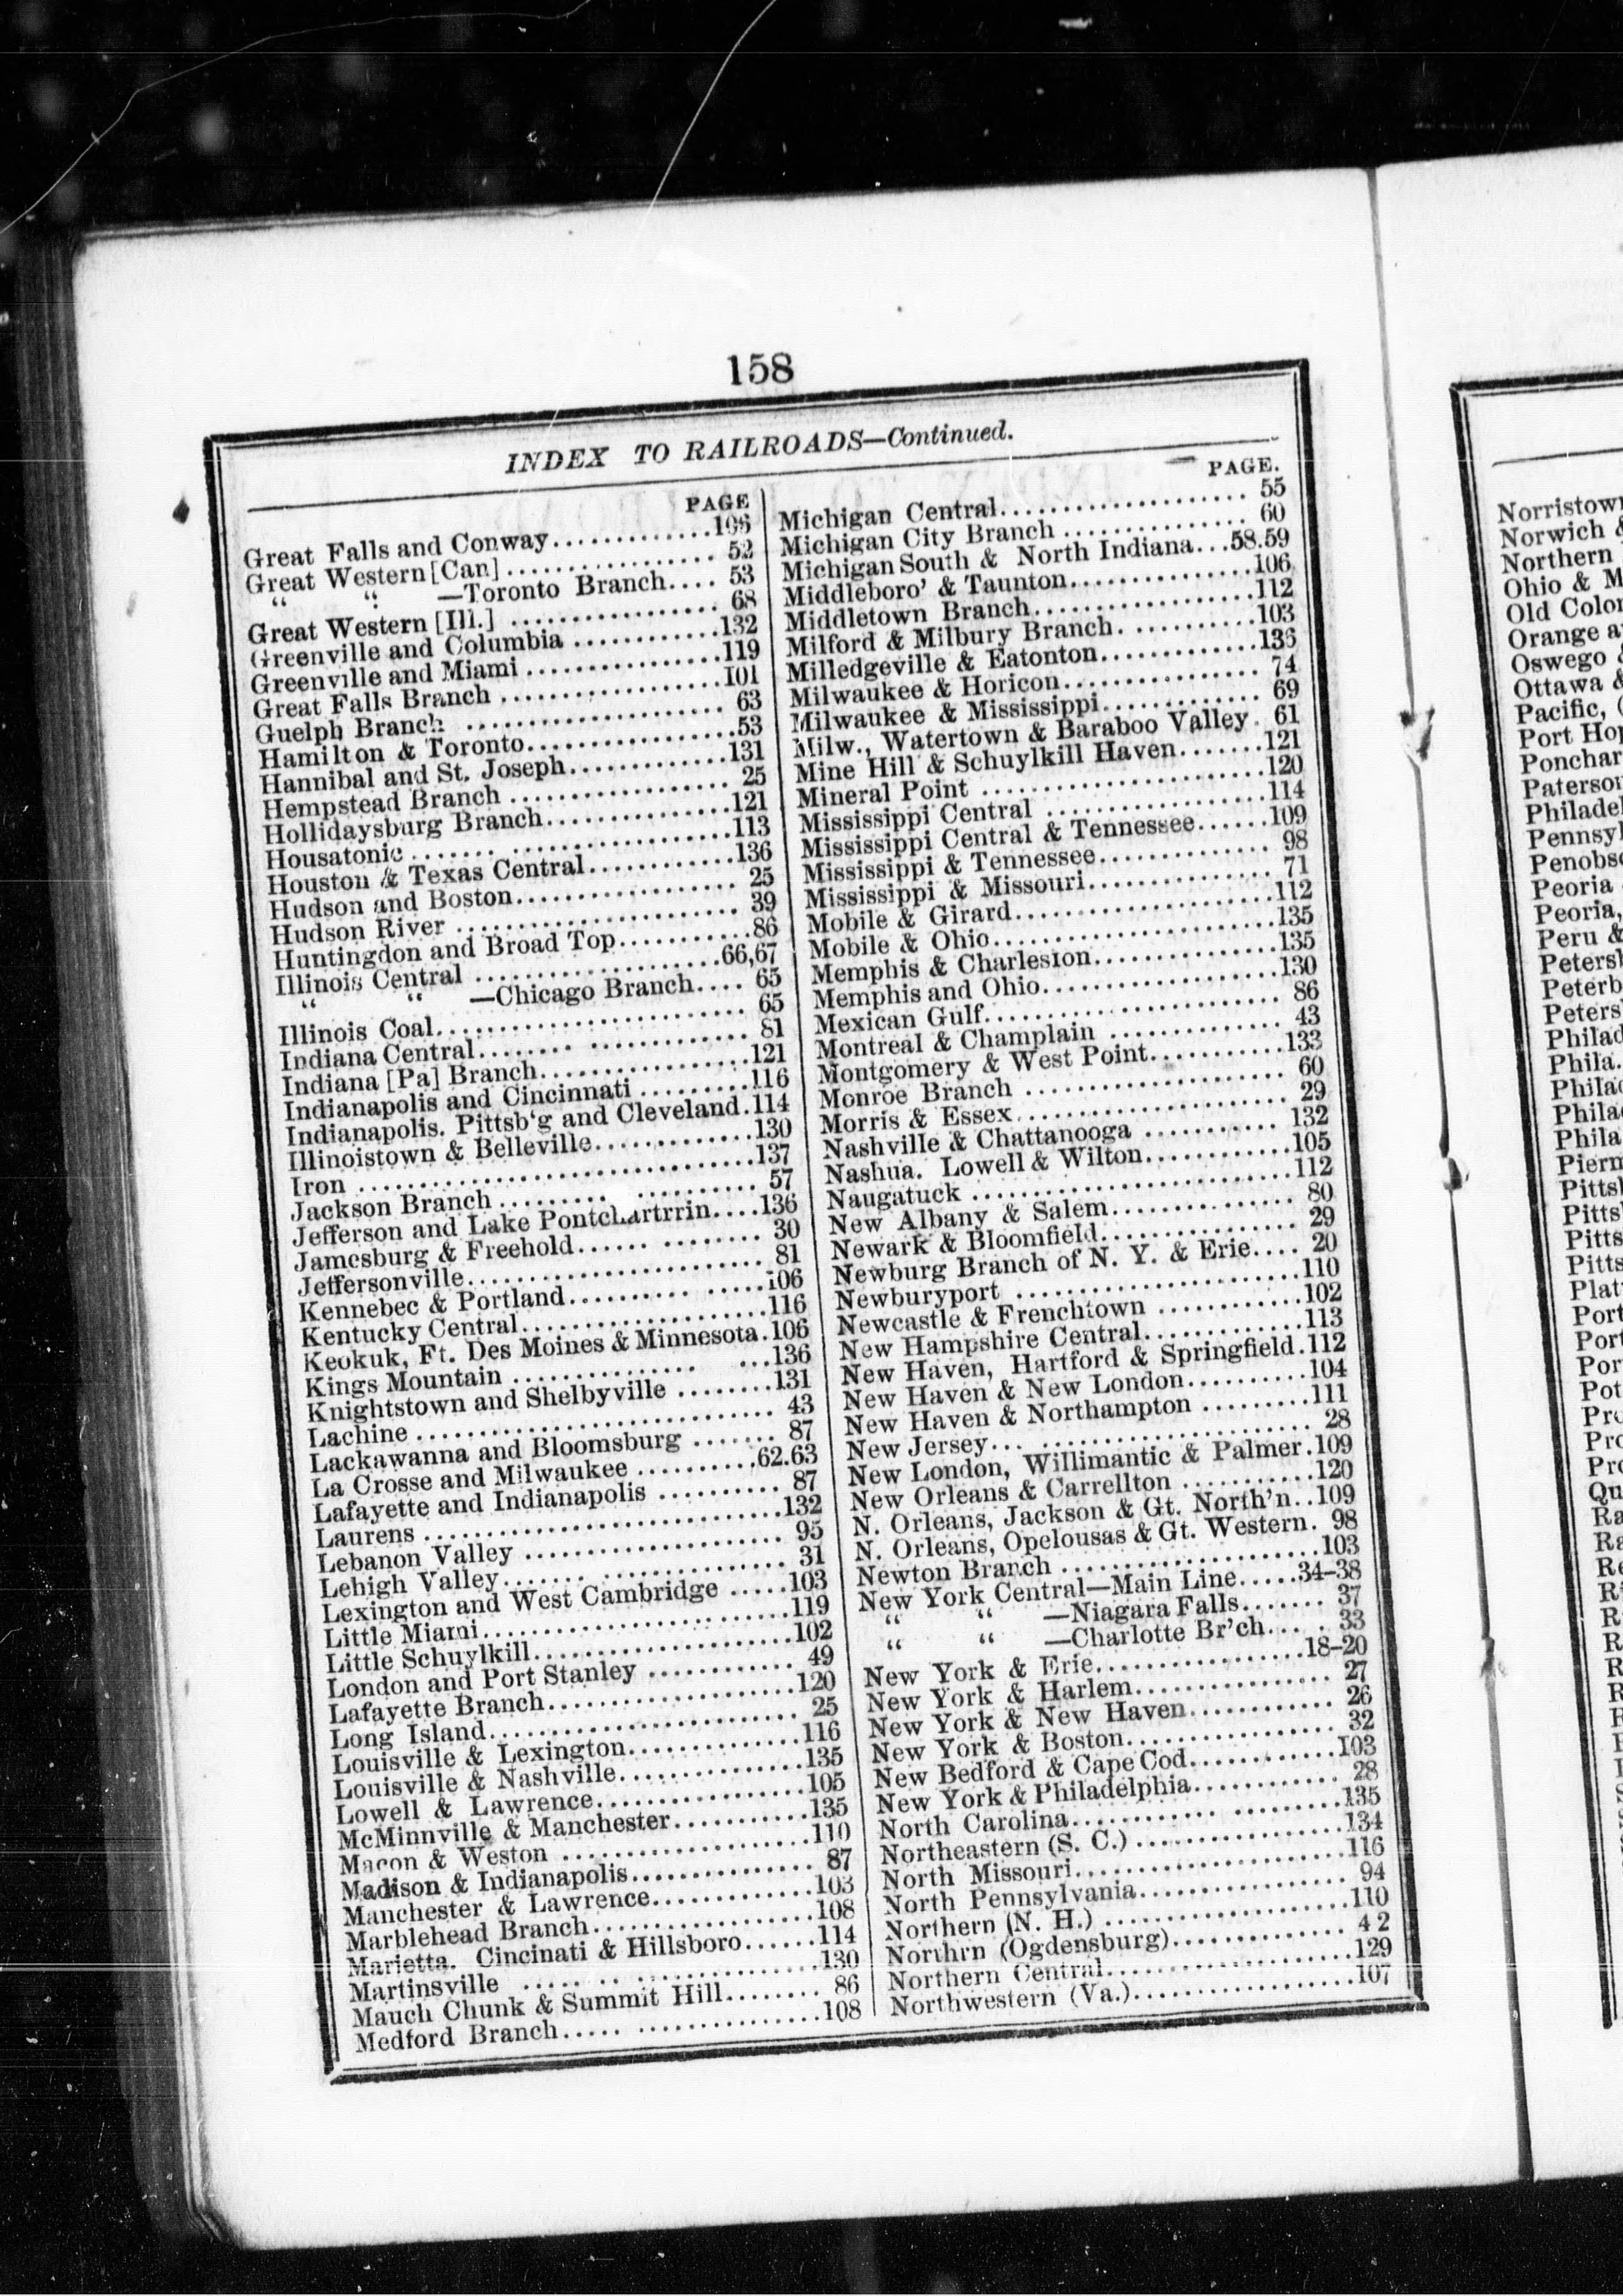 158
INDEX TO RAILROADS—Continued.
PAGE
Great Falls and Conway.............106
Great Western [Can] ................. 52
“ “ —Toronto Branch.... 53
Great Western [Ill.] ................. 68
Greenville and Columbia ............132
Greenville and Miami ................119
Great Falls Branch ...................101
Guelph Branch ...................... 63
Hamilton & Toronto..................53
Hannibal and St. Joseph.............131
Hempstead Branch ................... 25
Hollidaysburg Branch................121
Housatonic..........................113
Houston & Texas Central............136
Hudson and Boston................... 25
Hudson River ....................... 39
Huntingdon and Broad Top...........86
Illinois Central ....................66,67
“ “ —Chicago Branch.... 65
Illinois Coal......................... 65
Indiana Central...................... 81
Indiana [Pa] Branch..................121
Indianapolis and Cincinnati ..........116
Indianapolis. Pittsb‘g and Cleveland.114
Illinoistown & Belleville.............130
Iron ................................137
Jackson Branch ..................... 57
Jefferson and Lake Pontchartrrin....136
Jamesburg & Freehold............... 30
Jeffersonville........................ 81
Kennebec & Portland................106
Kentucky Central....................116
Keokuk, Ft. Des Moines & Minnesota.106
Kings Mountain .....................136
Knightstown and Shelbyville ........131
Lachine ............................. 43
Lackawanna and Bloomsburg ....... 87
La Crosse and Milwaukee ..........62.63
Lafayette and Indianapolis .......... 87
Laurens .............................132
Lebanon Valley ..................... 95
Lehigh Valley....................... 31
Lexington and West Cambridge .....103
Little Miami.........................119
Little Schuylkill.....................102
London and Port Stanley ............ 49
Lafayette Branch....................120
Long Island.......................... 25
Louisville & Lexington..............116
Louisville & Nashville...............135
Lowell & Lawrence..................105
McMinnville & Manchester..........135
Macon & Weston ...................110
Madison & Indianapolis.............. 87
Manchester & Lawrence.............103
Marblehead Branch..................108
Marietta. Cincinati & Hillsboro......114
Martinsville ........................130
Mauch Chunk & Summit Hill........ 86
Medford Branch.....................108
PAGE.
Michigan Central.................... 55
Michigan City Branch ............... 60
Michigan South & North Indiana...58.59
Middleboro’ & Taunton..............106
Middletown Branch.................112
Milford & Milbury Branch...........103
Milledgeville & Eatonton............136
Milwaukee & Horicon............... 74
Milwaukee & Mississippi............ 69
Milw., Watertown & Baraboo Valley. 61
Mine Hill & Schuylkill Haven.......121
Mineral Point ......................120
Mississippi Central .................114
Mississippi Central & Tennessee......109
Mississippi & Tennessee............. 98
Mississippi & Missouri.............. 71
Mobile & Girard....................112
Mobile & Ohio......................135
Memphis & Charleston..............135
Memphis and Ohio..................130
Mexican Gulf....................... 86
Montreal & Champlain ............. 43
Montgomery & West Point..........133
Monroe Branch .................... 60
Morris & Essex..................... 29
Nashville & Chattanooga .......... 132
Nashua. Lowell & Wilton...........105
Naugatuck .........................112
New Albany & Salem.............. 80
Newark & Bloomfield.............. 29
Newburg Branch of N. Y. & Erie.... 20
Newburyport ......................110
Newcastle & Frenchtown ...........102
New Hampshire Central............113
New Haven, Hartford & Springfield.112
New Haven & New London.........104
New Haven & Northampton ........111
New Jersey........................ 28
New London, Willimantic & Palmer.109
New Orleans & Carrellton ..........120
N. Orleans, Jackson & Gt. North’n..109
N. Orleans, Opelousas & Gt. Western. 98
Newton Branch ...................103
New York Central—Main Line.....34–38
“ “ —Niagara Falls....... 37
“ “ —Charlotte Br’ch..... 33
New York & Erie.................18–20
New York & Harlem............... 27
New York & New Haven........... 26
New York & Boston................ 32
New Bedford & Cape Cod...........103
New York & Philadelphia........... 28
North Carolina....................135
Northeastern (S. C.) ...............134
North Missouri....................116
North Pennsylvania................ 94
Northern (N. H.) ..................110
Northrn (Ogdensburg).............. 42
Northern Central..................129
Northwestern (Va.)................107
Norristow
Norwich &
Northern
Ohio & M
Old Colo
Orange a
Oswego
Ottawa &
Pacific, (
Port Ho
Ponchar
Paterso
Philade
Pennsy
Penobs
Peoria
Peoria,
Peru &
Peters
Peterb
Peters
Philad
Phila.
Phila
Phila
Phila
Pierm
Pitts
Pitts
Pitts
Pitts
Plat
Port
Port
Por
Pot
Pr
Pro
Pro
Qu
Ra
Ra
Re
R
R
R
R